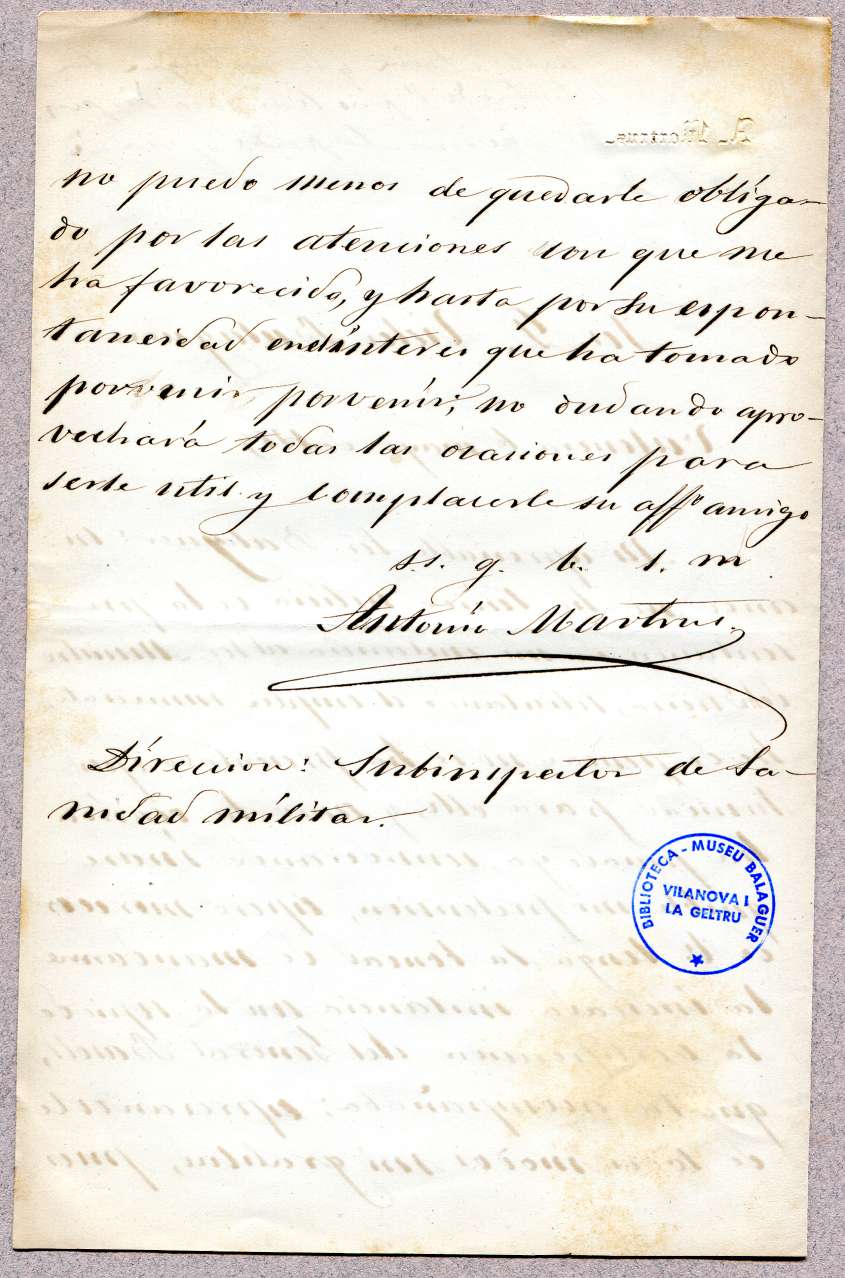 no puedo menos de quedarle obliga-
do por las atenciones con que me
ha favorecido, y hasta por su espon-
taneidad en el interes que ha tomado
por mi porvenir, no dudando apro-
vechará todas las ocasiones para
serle util y complacerle su aff.º amigo
s.s. q. b. s. m
Antonio Martrus.
Direccion: Subinspector de Sa-
nidad militar.
BIBLIOTECA - MUSEU BALAGUER
VILANOVA I
LA GELTRU